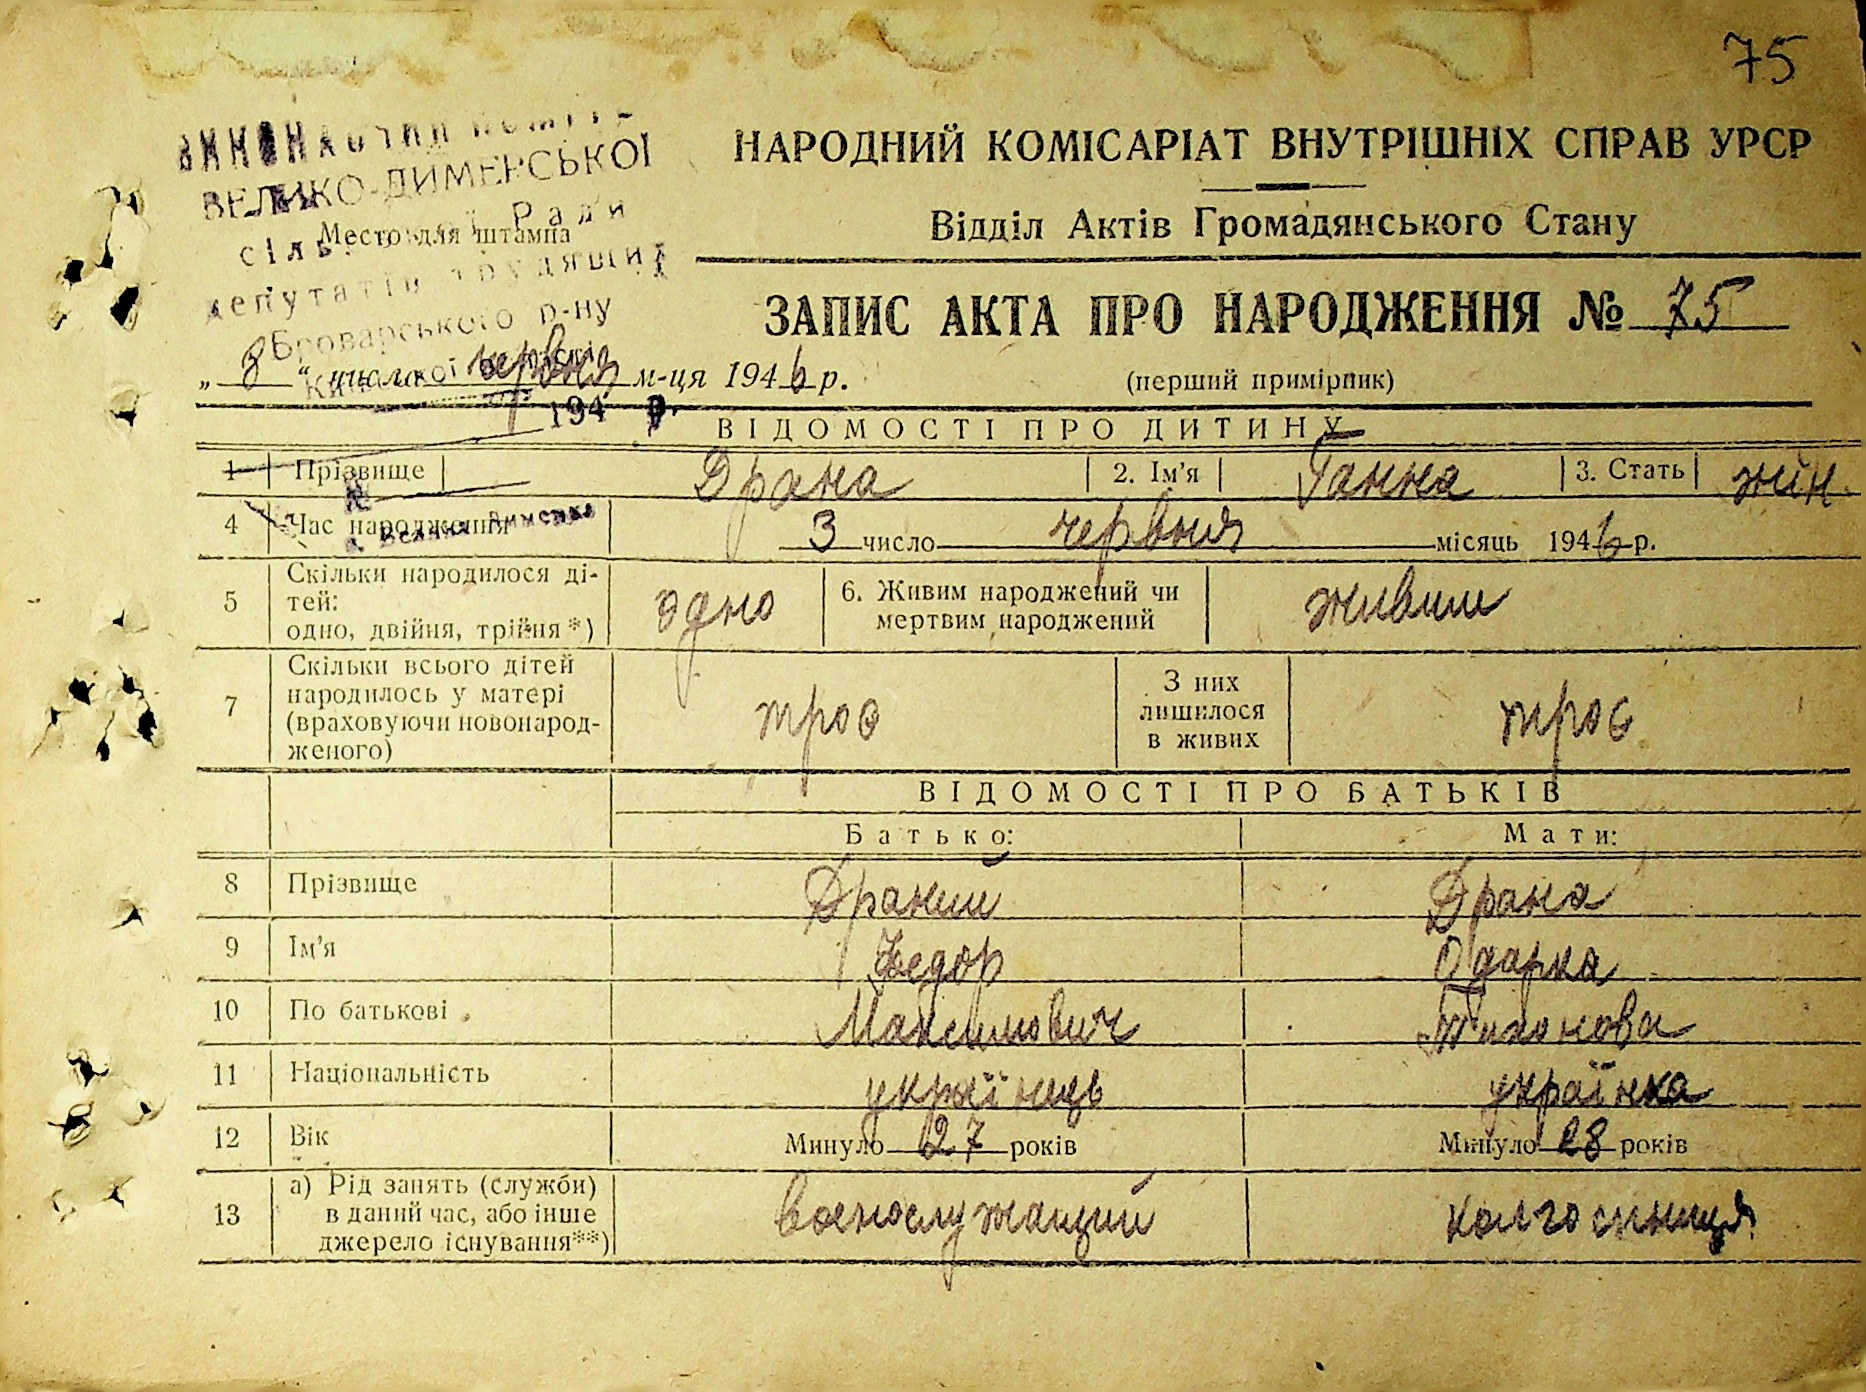 75
ВИКОНАВЧИЙ КОМІТЕ
ВЕЛИКО-ДИМЕРСЬКОЇ
сіль Ради
Место для штампа
депутатів трудящих
Броварського р-ну
Київської
194 р.
с. Велика Димерка
НАРОДНИЙ КОМІСАРІАТ ВНУТРІШНІХ СПРАВ УРСР
Відділ Актів Громадянського Стану
ЗАПИС АКТА ПРО НАРОДЖЕННЯ № 75
„ 8 “ числа червня м-ця 1946 р.
(перший примірник)
ВІДОМОСТІ ПРО ДИТИНУ
1 Прізвище Драна 2. Ім'я Ганна 3. Стать жін.
4 Час народження 3 число червня місяць 1946 р.
5 Скільки народилося ді-
тей:
одно, двійня, трійня*) одно 6. Живим народжений чи
мертвим народжений живим
7 Скільки всього дітей
народилось у матері
(враховуючи новонарод-
женого) троє З них
лишилося
в живих троє
ВІДОМОСТІ ПРО БАТЬКІВ
Батько: Мати:
8 Прізвище Драний Драна
9 Ім'я Федор Одарка
10 По батькові Максимович Тихонова
11 Національність українець українка
12 Вік Минуло 27 років Минуло 28 років
13 а) Рід занять (служби)
в даний час, або інше
джерело існування**) военослужащий колгоспниця